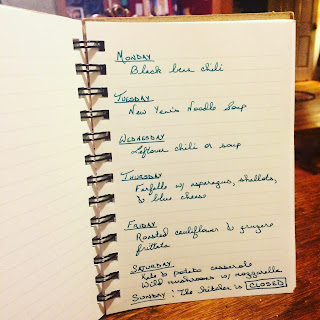 MONDAY
Black bean chili
TUESDAY
New Year's Noodle Soup
WEDNESDAY
Leftover chili or soup
THURSDAY
Farfalle w/ asparagus, shallots,
& blue cheese
FRIDAY
Roasted cauliflower & gruyere
frittata
SATURDAY
Kale & potato casserole
Wild mushrooms w/ mozzarella
SUNDAY: The kitchen is CLOSED